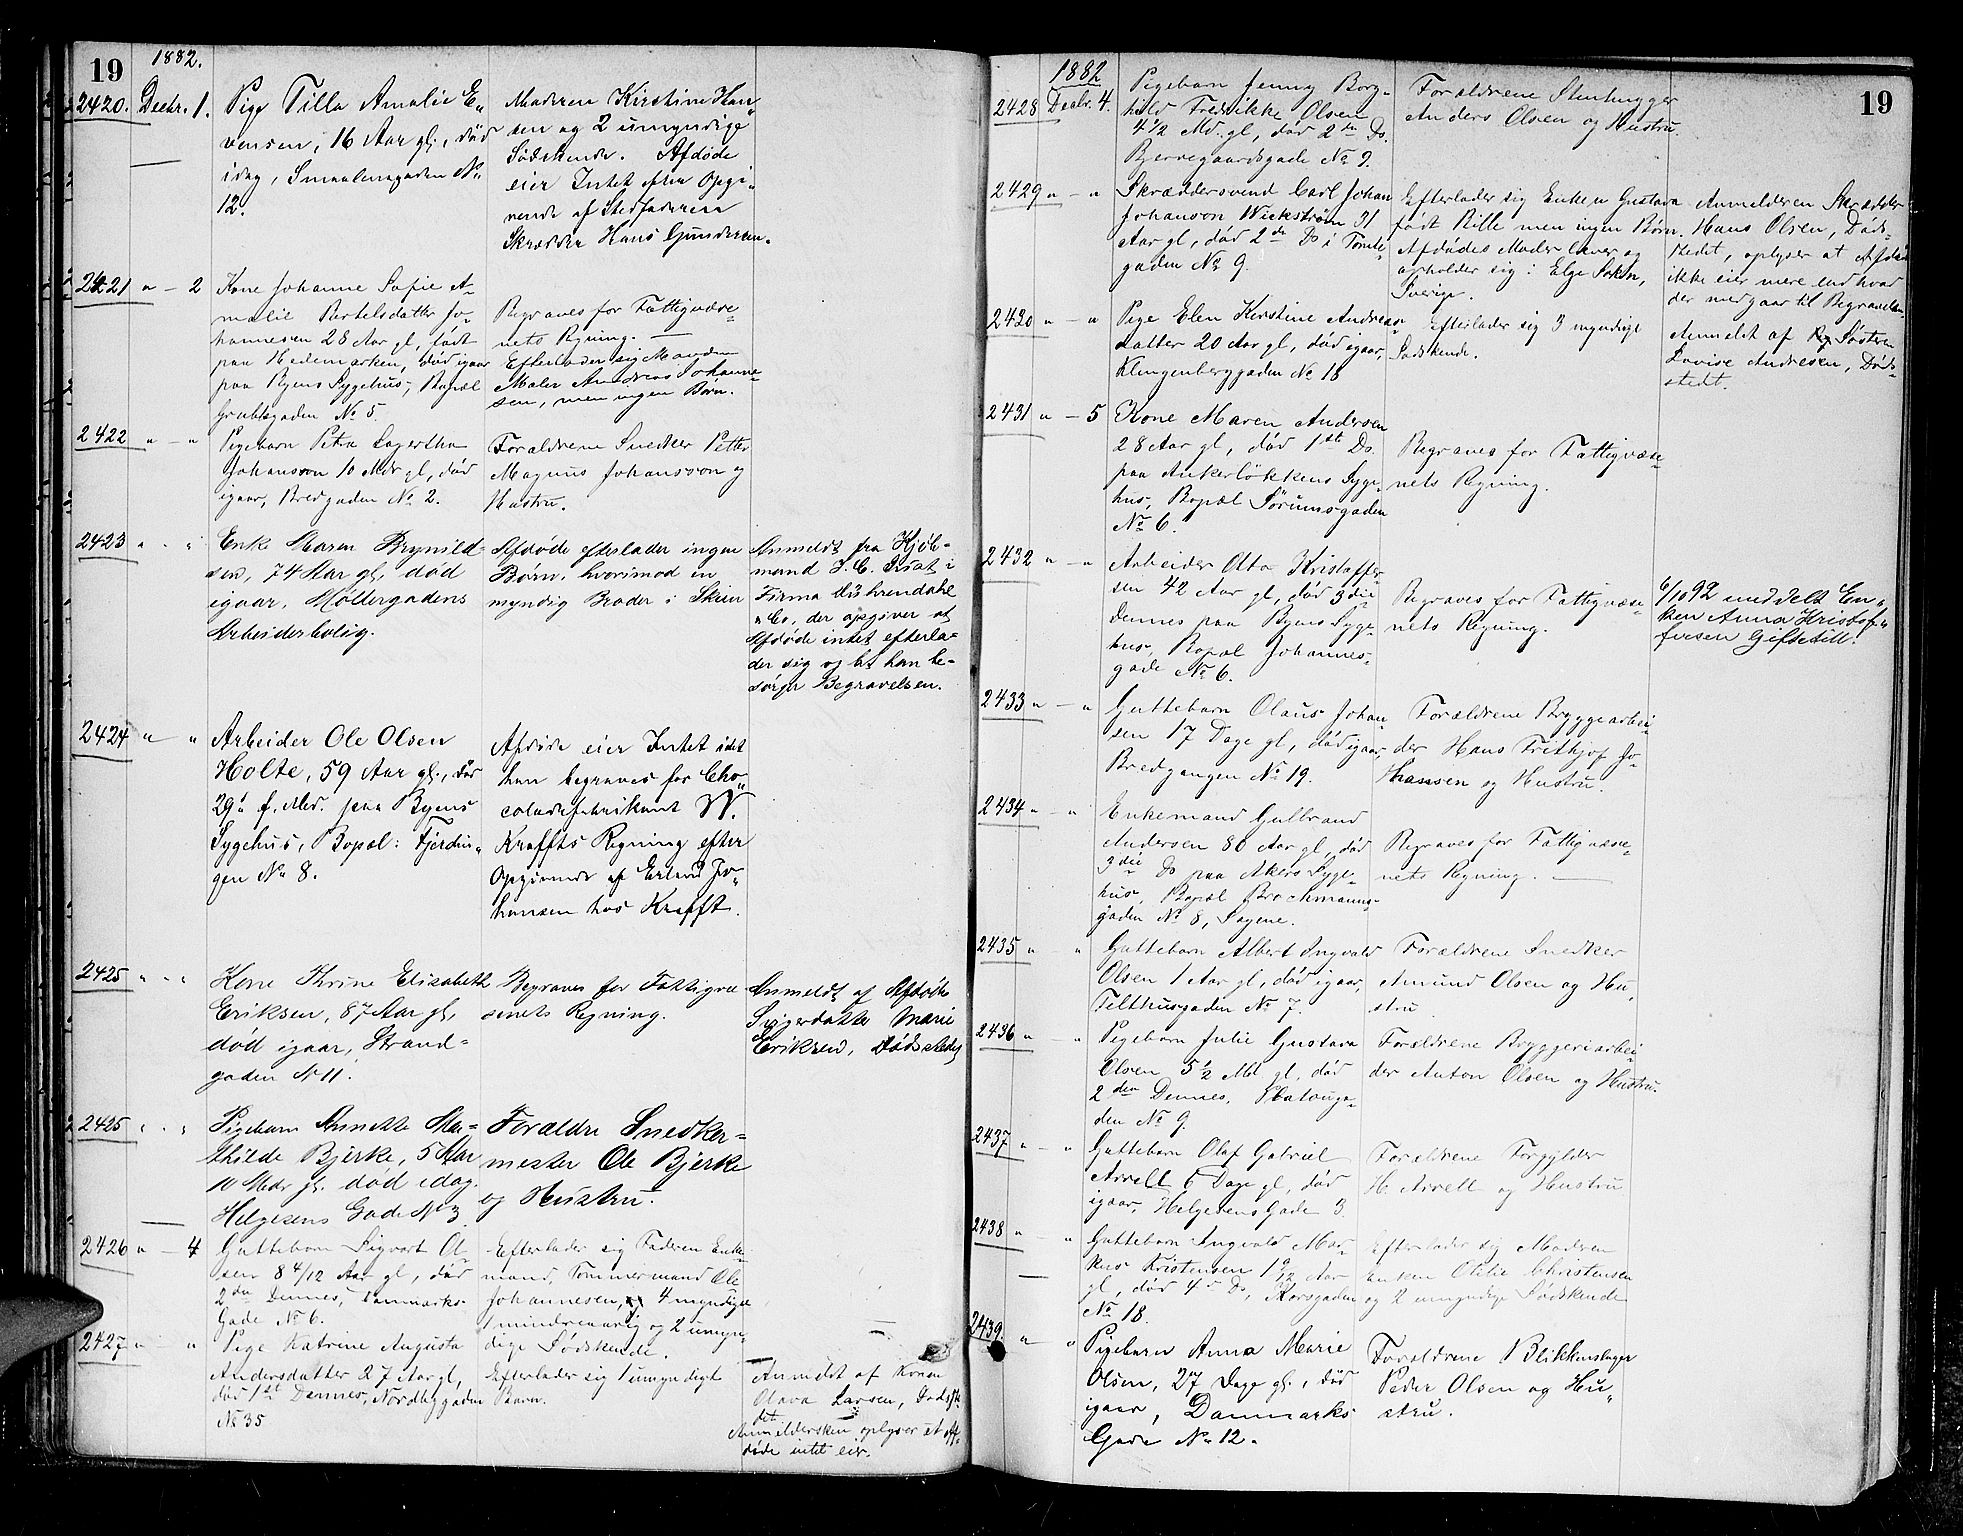 19
1882.
2420. Decbr. 1.
Pige Tilla Amalie E„
vensen, 16 Aar gl., død
idag, Smaalensgaden No
12.
Moderen Kirstine Han„
sen og 2 umyndige
Sødskende. Afdøde
eier Intet efter Opgi„
vende af Stedfaderen
Skrædder Hans Gundersen.
2421 " - 2
Kone Johanne Sofie A-
malie Bertelsdatter Jo-
hannesen 28 Aar gl, født
paa Hedemarken, død igaar
paa Byens Sygehus, Bopæl
Grubbegaden No 5.
Begraves for Fattigvæse-
nets Regning. —
Efterlader sig Manden
Maler Andreas Johanne-
sen, men ingen Børn.
2422 " - "
Pigebarn Petra Lagertha
Johansson 10 Mdr gl, død
igaar, Bredgaden No 2.
Forældrene Snedker Petter
Magnus Johansson og
Hustru.
2423 " - "
Enke Maren Brynild-
sen, 74 Aar gl. død
igaar, Møllergadens
Arbeiderbolig.
Afdøde efterlader ingen
Børn, hvorimod en
myndig Broder i Skien
Anmeldt fra Kjøb-
mand J. C. i
Firma Bührendahl
& Co, der opgiver at
Afdøde intet efterla-
der sig og at han be-
sørger Begravelsen.
2424 " "
Arbeider Ole Olsen
Holte, 59 Aar gl., død
29' f. Md. paa Byens
Sygehus, Bopæl: Fjerdin„
gen No 8.
Afdøde eier Intet idet
han begraves for Cho„
coladefabrikant W.
Kraffts Regning efter
Opgivende af Erland Jo„
hansen hos Krafft.
2425 " - "
Kone Thrine Elisabeth
Eriksen, 87 Aar gl,
død igaar, Strand-
gaden N 11.
Begraves for Fattigvæ
senets Regning.
Anmeldt af Afdødes
Svigerdatter Marie
Eriksen, Dødsstedet
2425 " . "
Pigebarn Annette Ma-
thilde Bjerke, 5 Aar
10 Mdr gl. død idag.
Helgesens Gade No 3
Forældre Snedker-
mester Ole Bjerke
og Hustru.
2426 " - 4
Guttebarn Sigvart Ol
sen 8 4/12 Aar gl, død
2den Dennes, Danmarks
Gade No 6.
Efterlader sig Faderen Enke-
mand, Tømmermand Ole
Johannesen, 4 myndige
1 mindreaarig og 2 umyn-
dige Sødskende.
2427 " - "
Pige Katrine Augusta
Andersdatter 27 Aar gl,
død 1st Dennes, Nordbygaden
No 35
Efterlader sig 1 umyndigt
Barn.
Anmeldt af Konen
Olava Larsen, Dødsste
det
Anmeldersken oplyser at Af-
døde intet eier.
19
1882
2428 Decbr. 4.
Pigebarn Jenny Borg-
hild Fredrikke Olsen
4 1/2 Md. gl, død 2den Ds.
Bjerregaardsgade No 9.
Forældrene Stenhugger
Anders Olsen og Hustru.
2429 " - "
Skræddersvend Carl Johan
Johanson Wickstrøm 31
Aar gl, død 2de Ds i Tomte-
gaden No 9.
Efterlader sig Enken Gustava
født Bille men ingen Børn.
Afdødes Moder lever og
opholder sig i Elge Sokn,
Sverige.
Anmelderen Skrædder
Hans Olsen, Døds-
stedet, oplyser at Afdøde
ikke eier mere end hvad
der medgaar til Begravelsen
2420 " - "
Pige Elen Kirstine Andreas
datter 20 Aar gl, død igaar,
Klingenberggaden No 18
Efterlader sig 3 myndige
Sødskende.
Anmeldt af Søsteren
Lovise Andresen, Døds-
stedet.
2431 " - 5
Kone Maren Andersen
28 Aar gl, død 1st Ds.
paa Ankerløkkens Syge-
hus, Bopæl Sørumsgaden
No 6.
Begraves for Fattigvæse-
nets Regning.
2432 " - "
Arbeider Otto Kristoffer-
sen 42 Aar gl, død 3die
Dennes paa Byens Syge-
hus, Bopæl Johannes-
gade No 6.
Begraves for Fattigvæse-
nets Regning.
6/10 92 meddelt En„
ken Anna Kristof„
fersen Giftetill.
2433 " - "
Guttebarn Olaus Johan
sen 17 Dage gl, død igaar,
Bredgangen No 19.
Forældrene Bryggearbei-
der Hans Frithjof Jo-
hansen og Hustru.
2434 " - "
Enkemand Gulbrand
Andersen 80 Aar gl, død
3die Ds paa Akers Syge-
hus, Bopæl Brochmanns-
gaden No 8, Sagene.
Begraves for Fattigvæse-
nets Regning. —
2435 " "
Guttebarn Albert Ingvald
Olsen 1 Aar gl, død igaar,
Telthusgaden No 7.
Forældrene Snedker
Amund Olsen og Hu„
stru.
2436 " - "
Pigebarn Julie Gustava
Olsen 5 1/2 Md gl, død
2den Dennes,
den No 9.
Forældrene Bryggeriarbei-
der Anton Olsen og Hustru.
2437 " - "
Guttebarn Olaf Gabriel
Arvell 6 Dage gl, død
igaar, Helgesens Gade 3.
Forældrene Forgylder
H. Arvell og Hustru
2438 " - "
Guttebarn Ingvald Mar-
kus Kristensen 1 9/12 Aar
gl, død 4d Ds, Korsgaden
No 18.
Efterlader sig Moderen
Enken Otilie Christensen
og 2 umyndige Sødskende
2439. " - "
Pigebarn Anna Marie
Olsen, 27 Dage gl., død
igaar, Danmarks
Gade No 12.
Forældrene Blikkenslager
Peder Olsen og Hu„
stru.